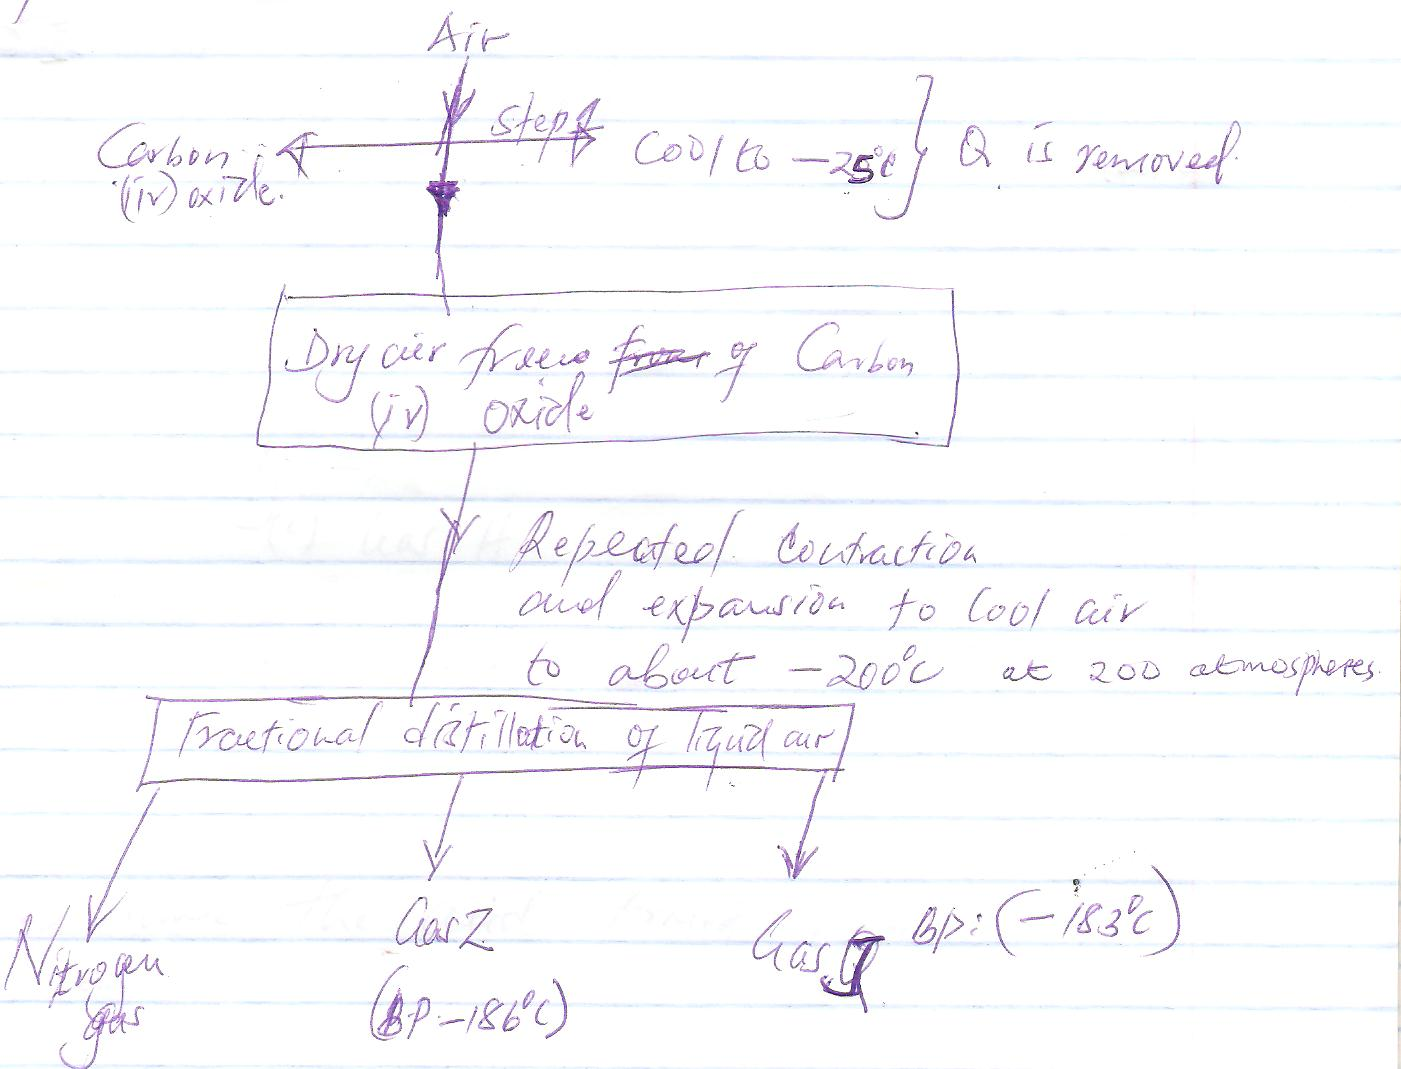 Air
Step 1
Carbon
(iv) oxide.
Cool to -25°C } Q is removed.
Dry air free of Carbon
(iv) oxide
Repeated Contraction
and expansion to Cool air
to about -200°C at 200 atmospheres.
Fractional distillation of liquid air
Nitrogen
gas
Gas Z
(BP -186°C)
Gas J BP: (-183°C)